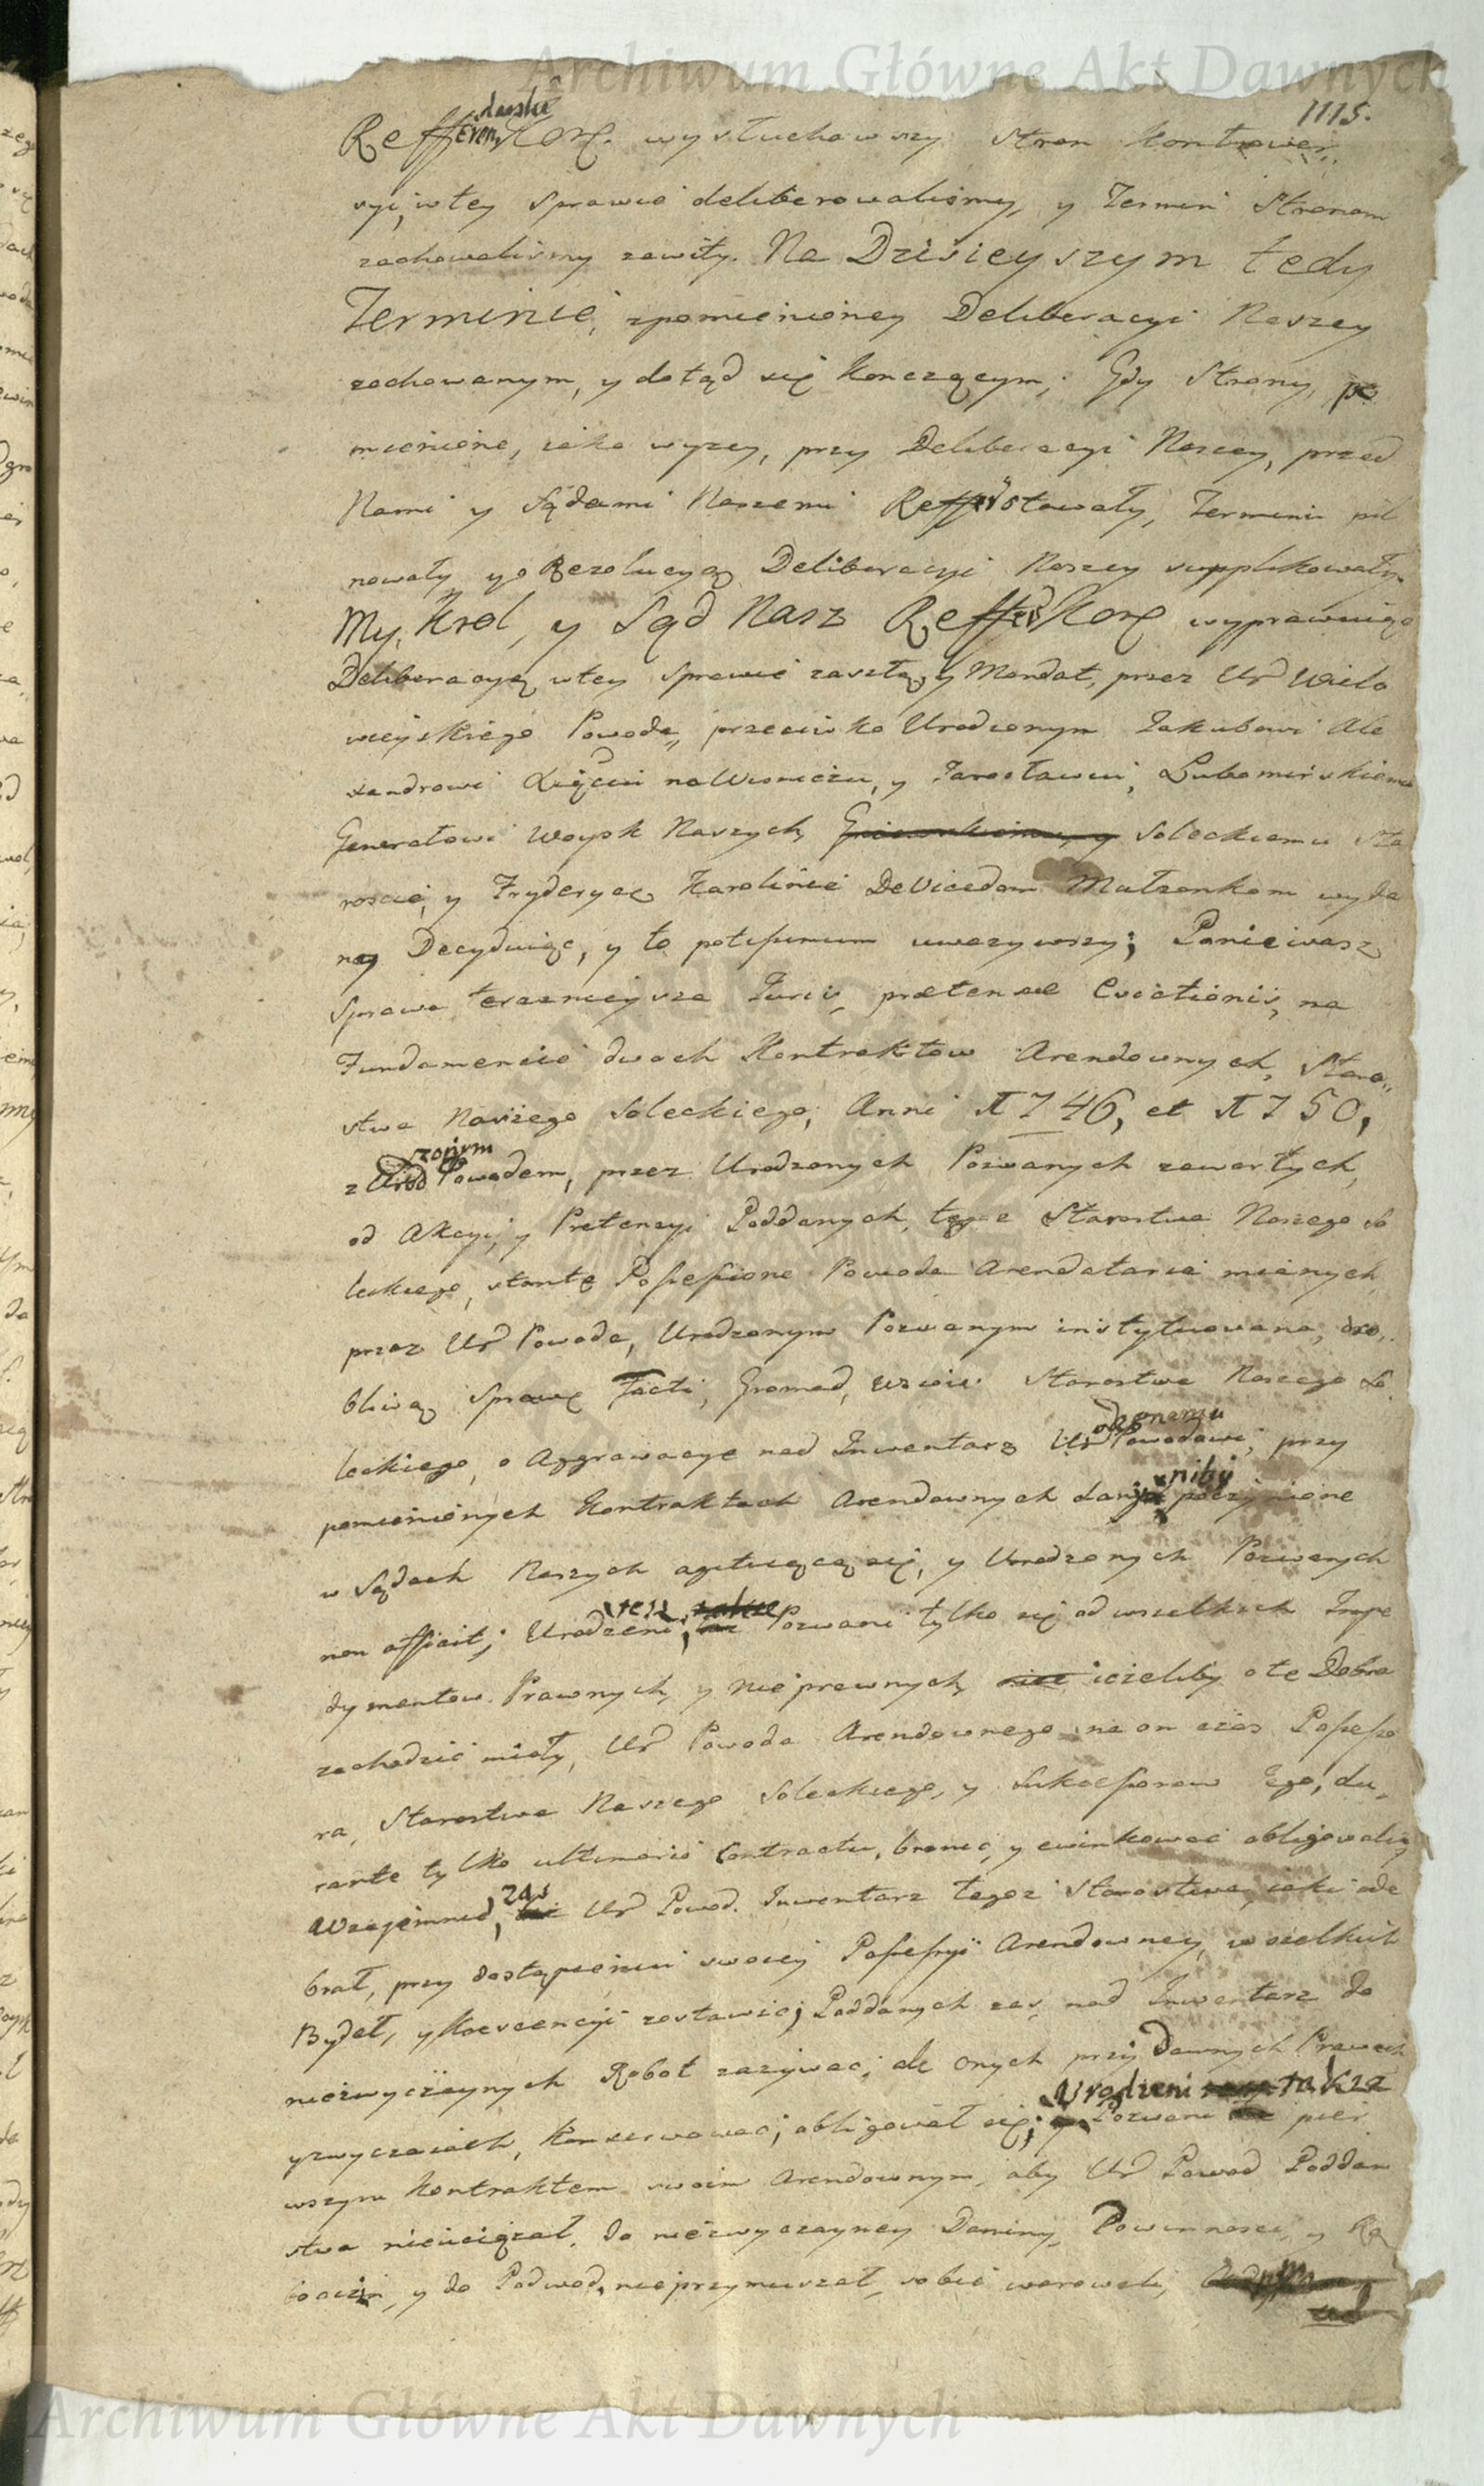 Archiwum Główne Akt Dawnych
1115.
Refferendarskie Kor. wysłuchawszy Stron kontrower,,
syi, wtey Sprawie deliberowaliśmy, y Termin Stronom
zachowaliśmy zawity. Na Dzisieyszym tedy
Terminie, zpomienioney Deliberacyi Naszey
zachowanym, y dotąd się kończącym, Gdy Strony, po
mienione, iako wyzey, przy Deliberacyi Naszey, przed
Nami y Sądami Naszemi Reffer stawały, Terminu pil
nowały y o Rezolucyą Deliberacyi Naszey supplikowały.
My, Krol, y Sąd Nasz Reffer Kor wyprawuiąc
Deliberacyą wtey Sprawie zaszłą, y Mandat, przez Ur Wielo
wieyskiego Powoda, przeciwko Urodzonym Jakubowi Ale
xandrowi Xięciu na Wiśniczu, y Jarosławiu, Lubomirskiemu
Generałowi Woysk Naszych, Soleckiemu Sta
roscie, y Fryderyce Karolinie De Vicedom Małzonkom wyda
ny Decyduiąc, y to potissimum uwazywszy; Poniewasz
Sprawa terazniejsza Juris, prætensæ Evictionis, na
Fundamencie dwoch Kontraktow Arendownych, Staro,,
stwa Naszego Soleckiego, Anni 1746, et 1750,
z Urodzonym Powodem, przez Urodzonych Pozwanych zawartych,
od Akcyi, y Pretensyi Poddanych, tegoz Starostwa Naszego So
leckiego, stante Possessione Powoda Arendatarie mianych
przez Ur Powoda, Urodzonym Pozwanym instytuowana, oso,,
bliwą Sprawę Facti, Gromad, wsiow Starostwa Naszego So
leckiego, o Aggrawacye nad Inwentarz Ur Powodowi, przy
pomienionych Kontraktach Arendownych dany, niby poczynione
w Sądach Naszych agituiącą się, y Urodzonych Pozwanych
non afficit; Urodzeni, tesz Pozwani tylko się od wszelkich Impe
dymentow Prawnych, y nieprawnych, iezeliby o te Dobra
zachodzić miały, Ur Powoda Arendownego na on czas Possesso
ra, Starostwa Naszego Soleckiego, y Sukcessorow Jego, du,,
rante tylko ultimario Contractu, bronić, y ewinkować obligowali się
Wzajemnie, zas Ur Powod. Inwentarz tegoz Starostwa, iaki ode
brał, przy dostąpieniu swoiey Possessyi Arendowney, wszelkich
Bydeł, y Krescencyi zostawić; Poddanych zas, nad Inwentarz do
niezwyczaynych Robot zazywac; ale onych przy Dawnych Prawach
y zwyczaiach, konserwowac, obligował się; Urodzeni takze Pozwani pier
wszym Kontraktem swoim Arendownym, aby Ur Powod Poddań
stwa nieuciązał, do niezwyczayney Daniny, Powinnosci, y Ro
bocizn, y do Podwod, nieprzymuszał, sobie warowali,
Archiwum Główne Akt Dawnych